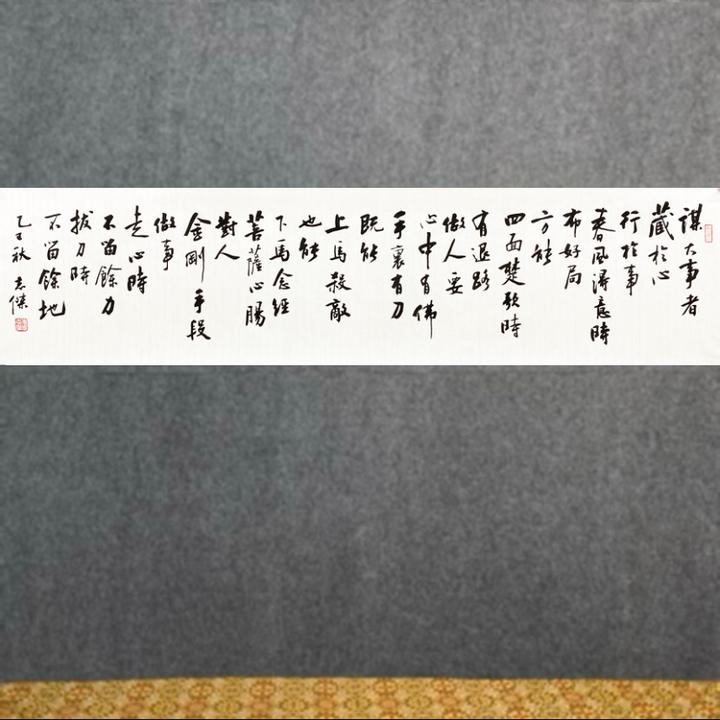 謀大事者
藏於心
行於事
春風得意時
布好局
方能
四面楚歌時
有退路
做人要
心中有佛
手裏有刀
既能
上馬殺敵
也能
下馬念經
菩薩心腸
對人
金剛手段
做事
走心時
不留餘力
拔刀時
不留餘地
乙巳秋 志傑